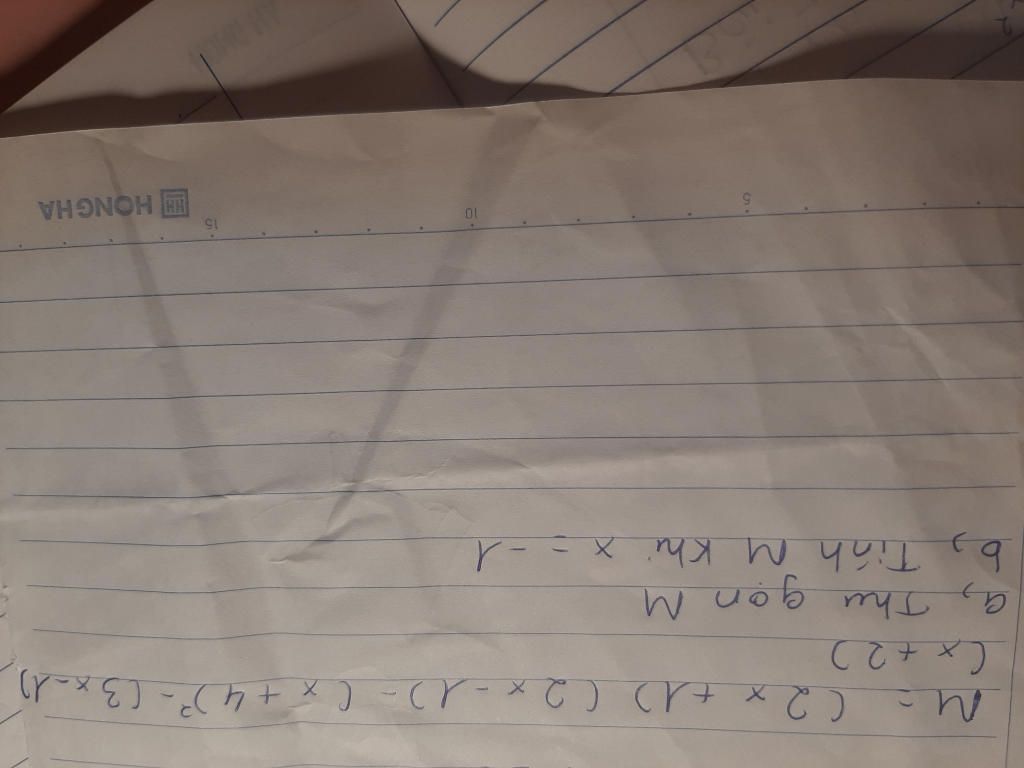 M = (2x + 1) (2x - 1) - (x + 4)² - (3x - 1)
(x + 2)
a, Thu gọn M
b, Tính M khi x = -1
5 10 15 HH HONG HA